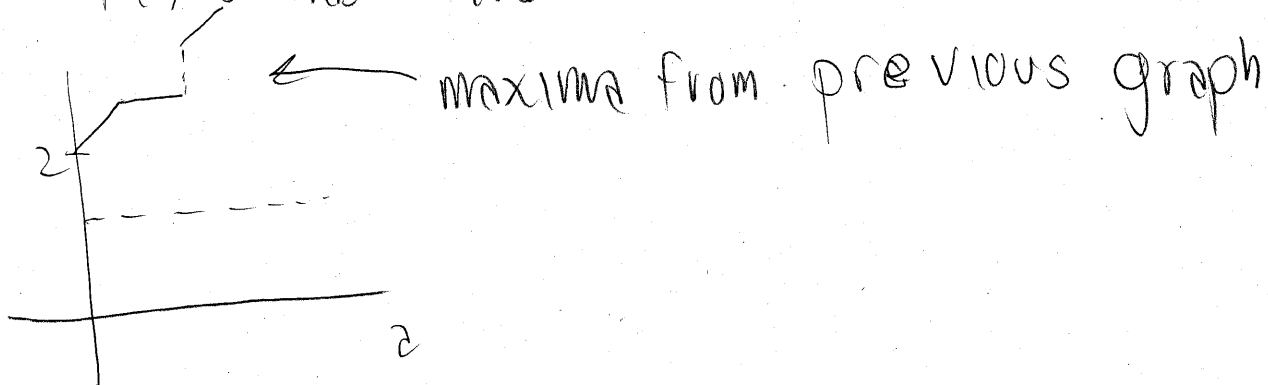 maxima from previous graph
2
a